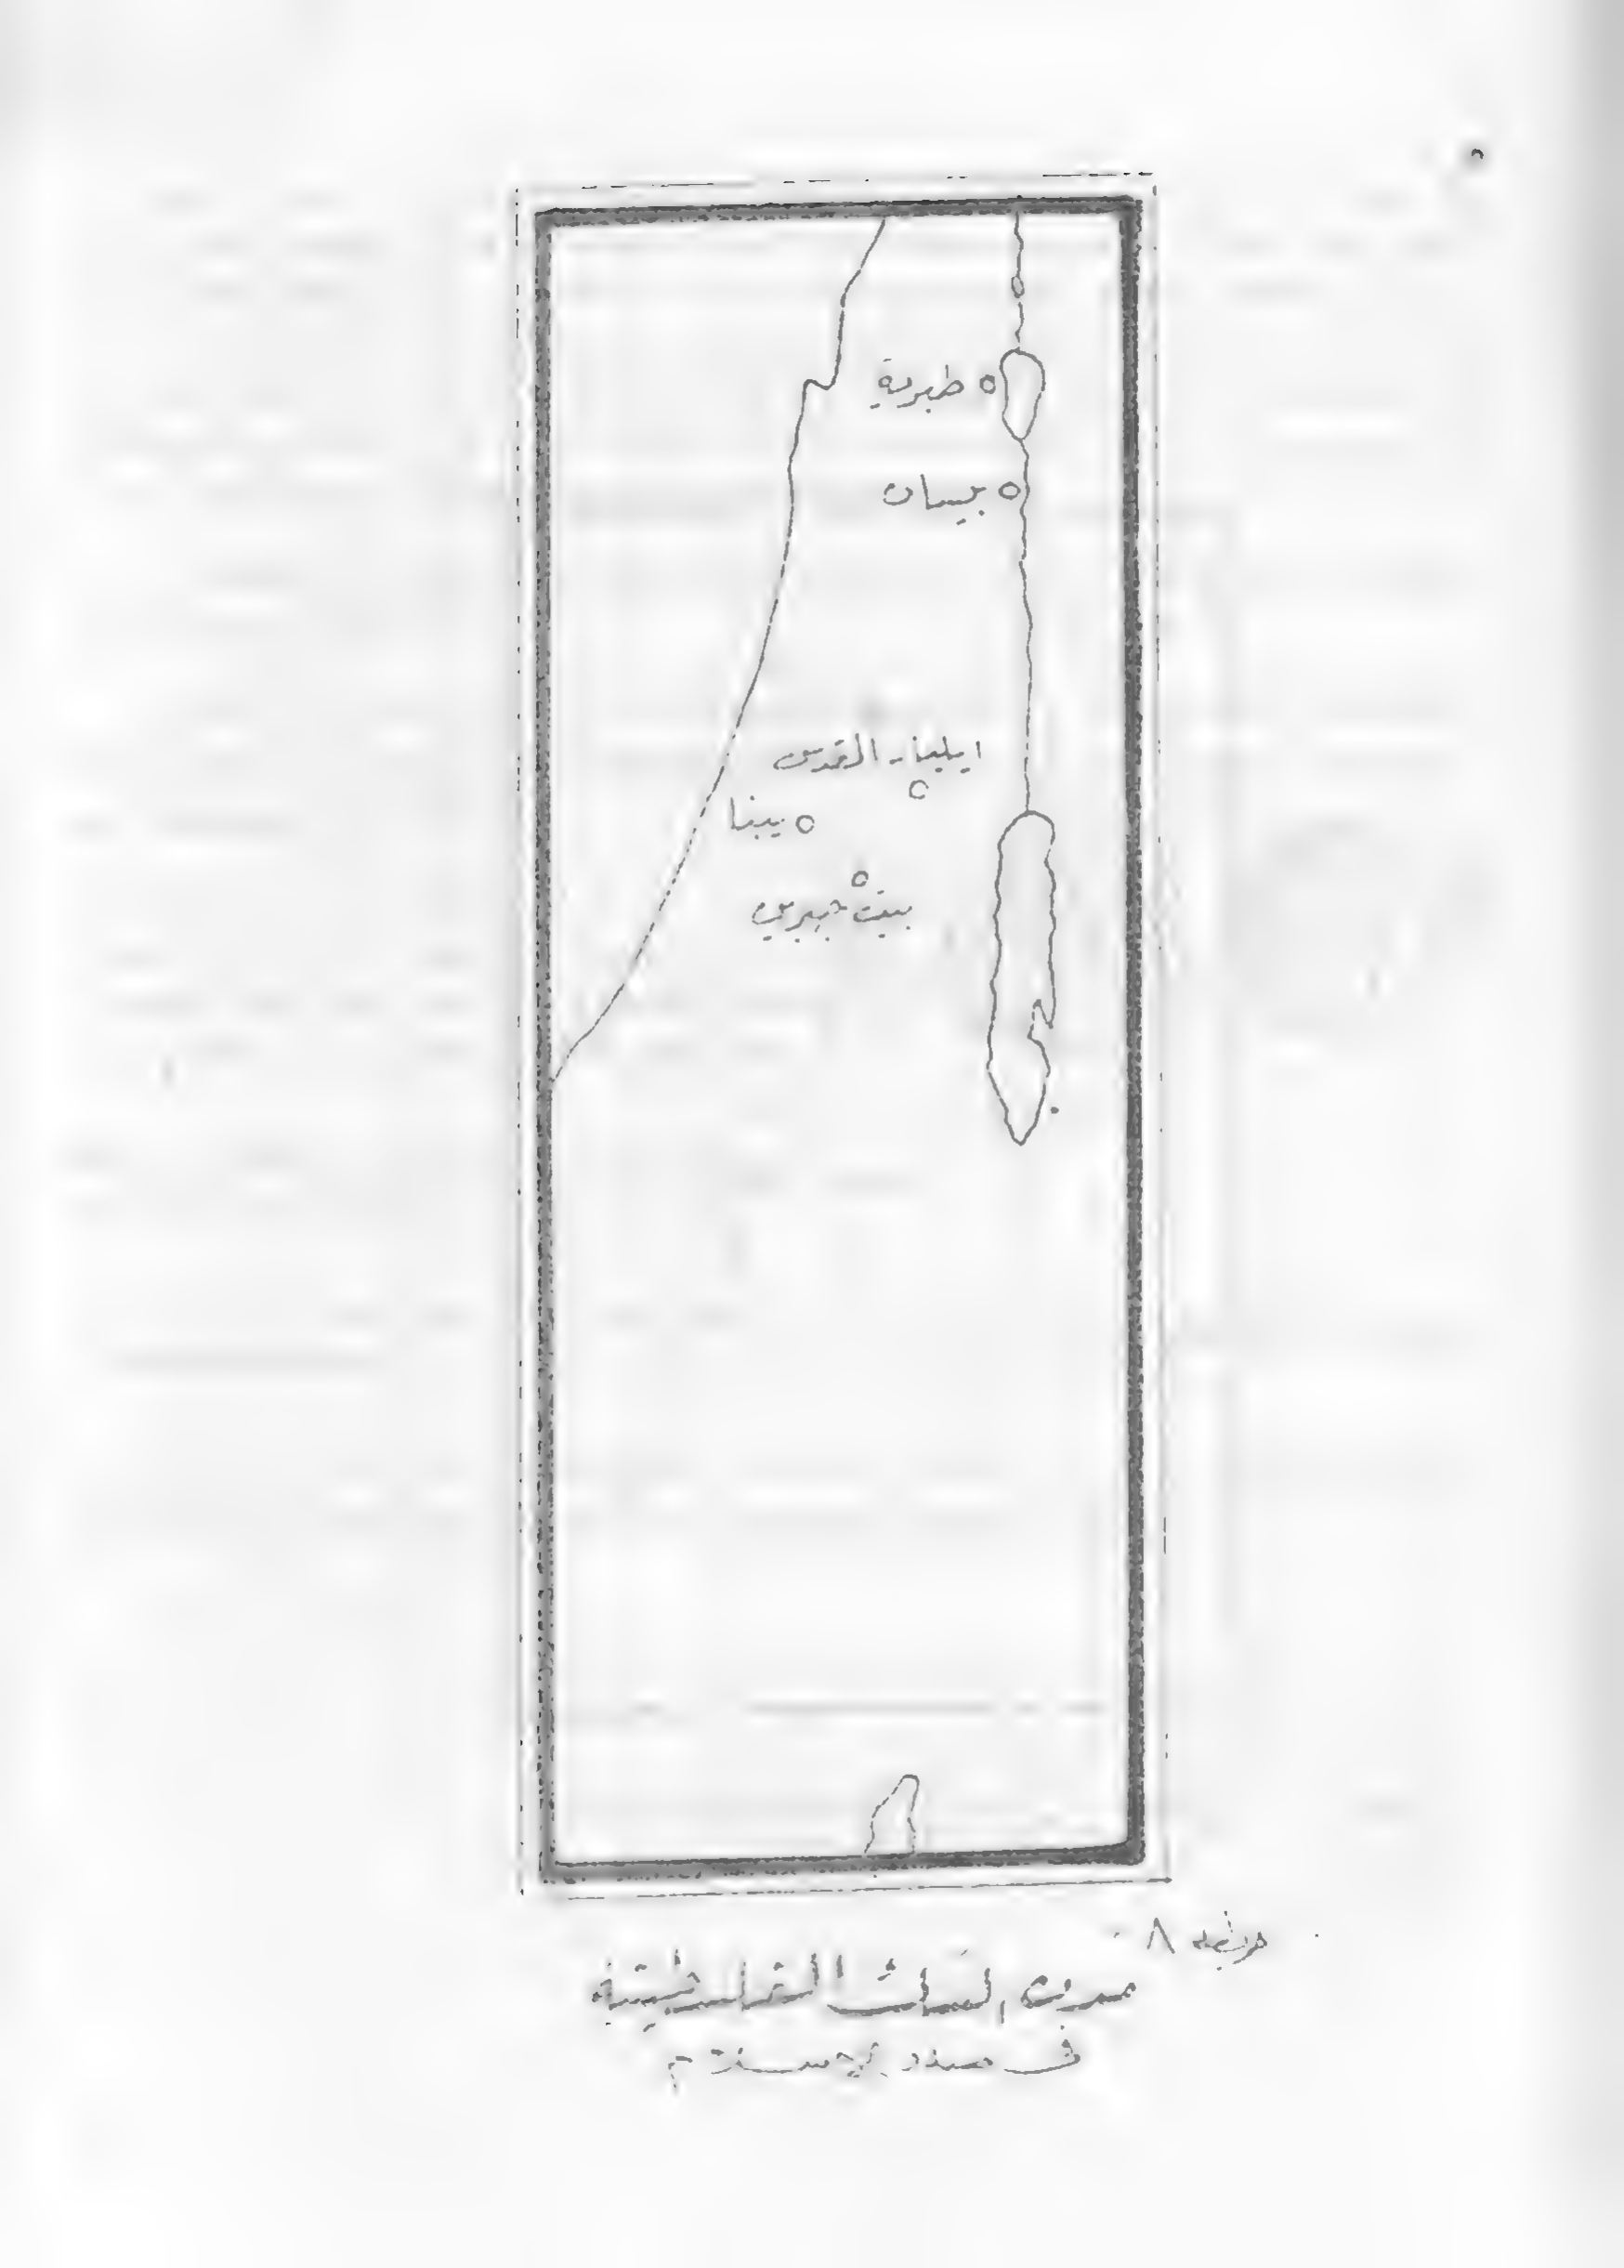 طبرية
بيسان
ايلياء - القدس
يبنا
بيت جبرين
خريطه ٨
مدن السك الفلسطينية
في صدر الإسلام